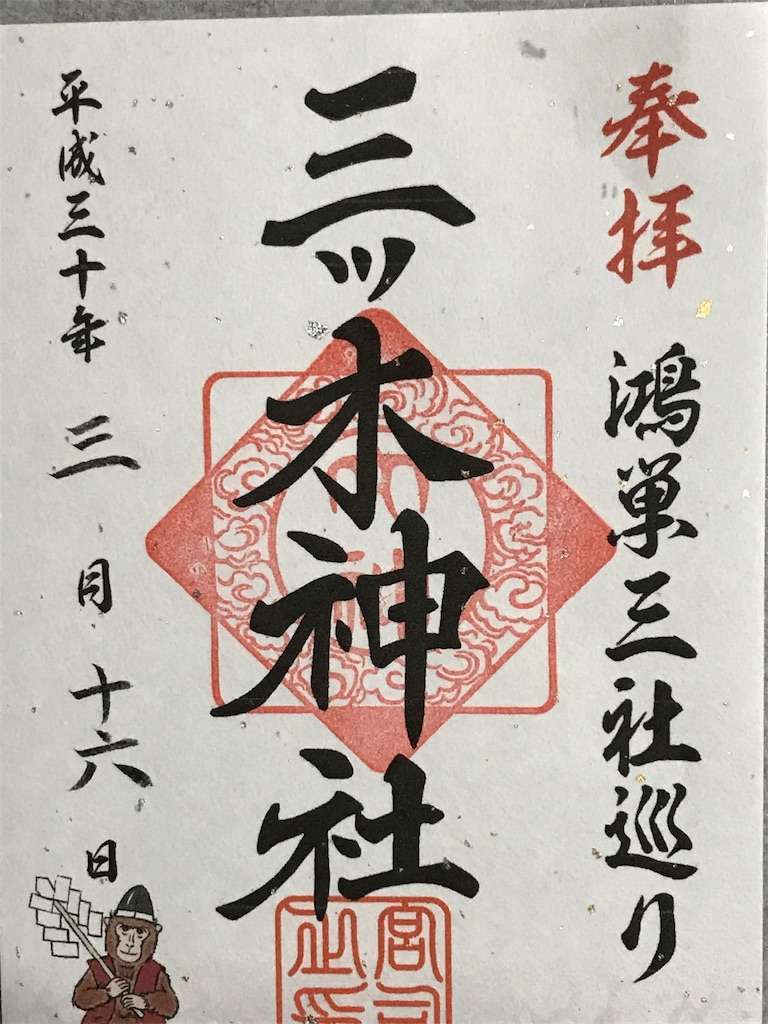 奉拝
鴻巣三社巡り
三ッ木神社
平成三十年 三月十六日